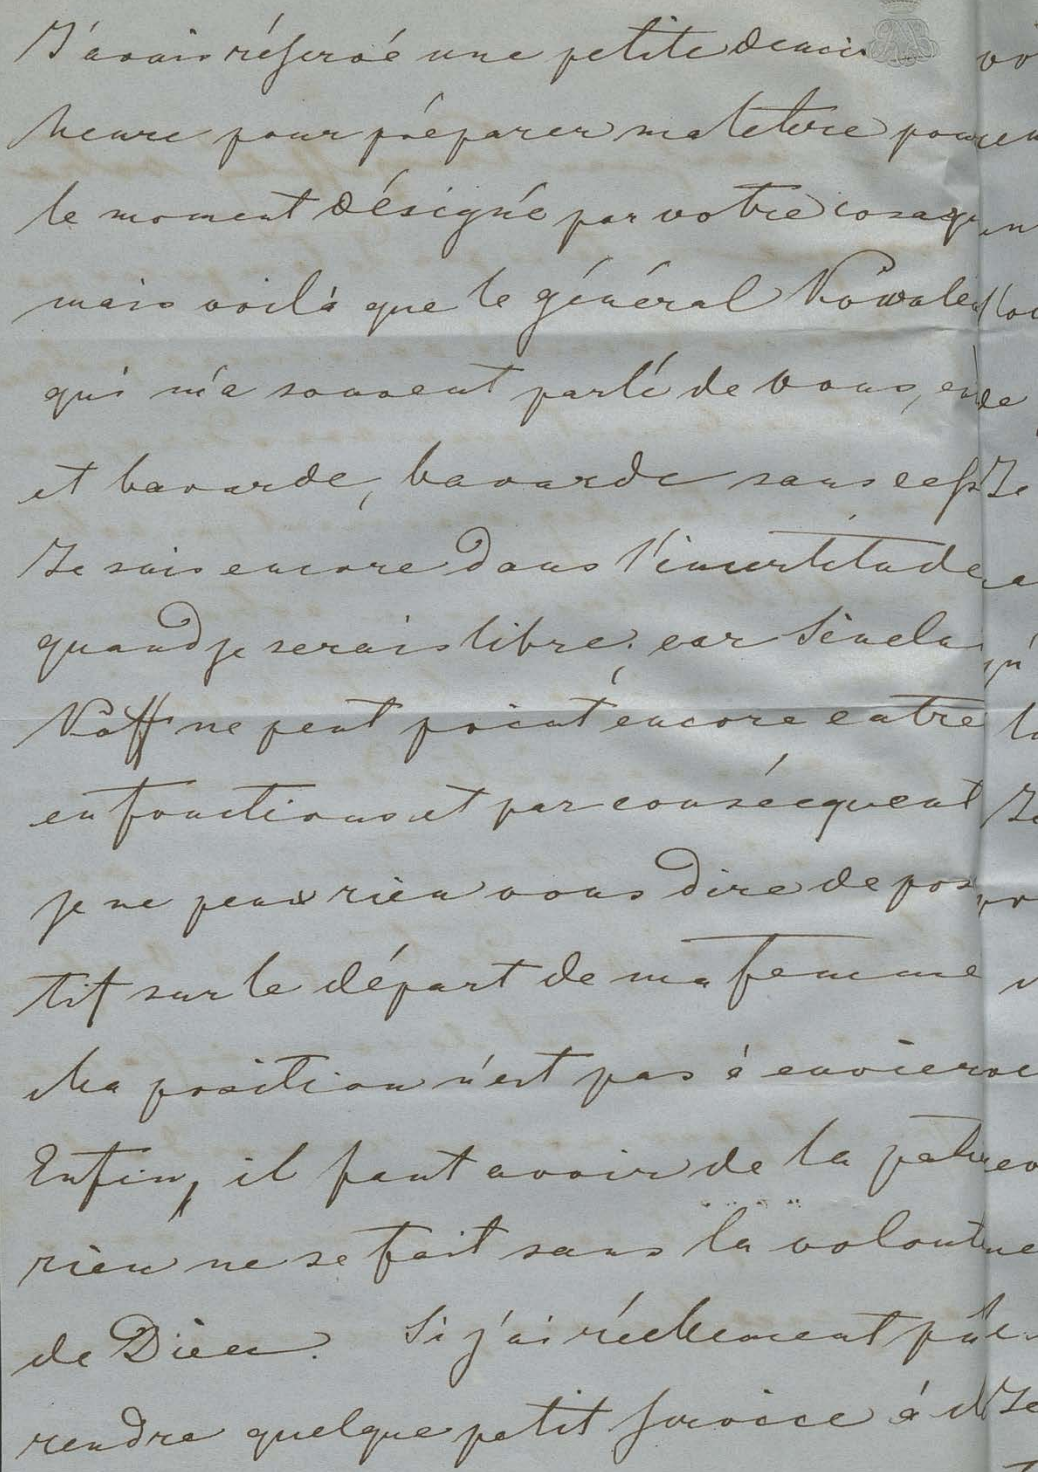 J'avais réservé une petite demie
heure pour préparer ma lettre pour
le moment désigné par votre cosaque
mais voilà que le général
qui m'a souvent parlé de vous,
et bavarde, bavarde sans cess
Je suis encore dans l'incertitude
quand je serais libre, car
ne peut point encore entre
en fonctions et par conséequent
je ne peux rien vous dire de posi
tif sur le départ de ma femme
Ma position n'est pas à envier
Enfin, il faut avoir de la patie
rien ne se fait sans la volont
de Dieu. Si j'ai réellement pû
rendre quelque petit service à